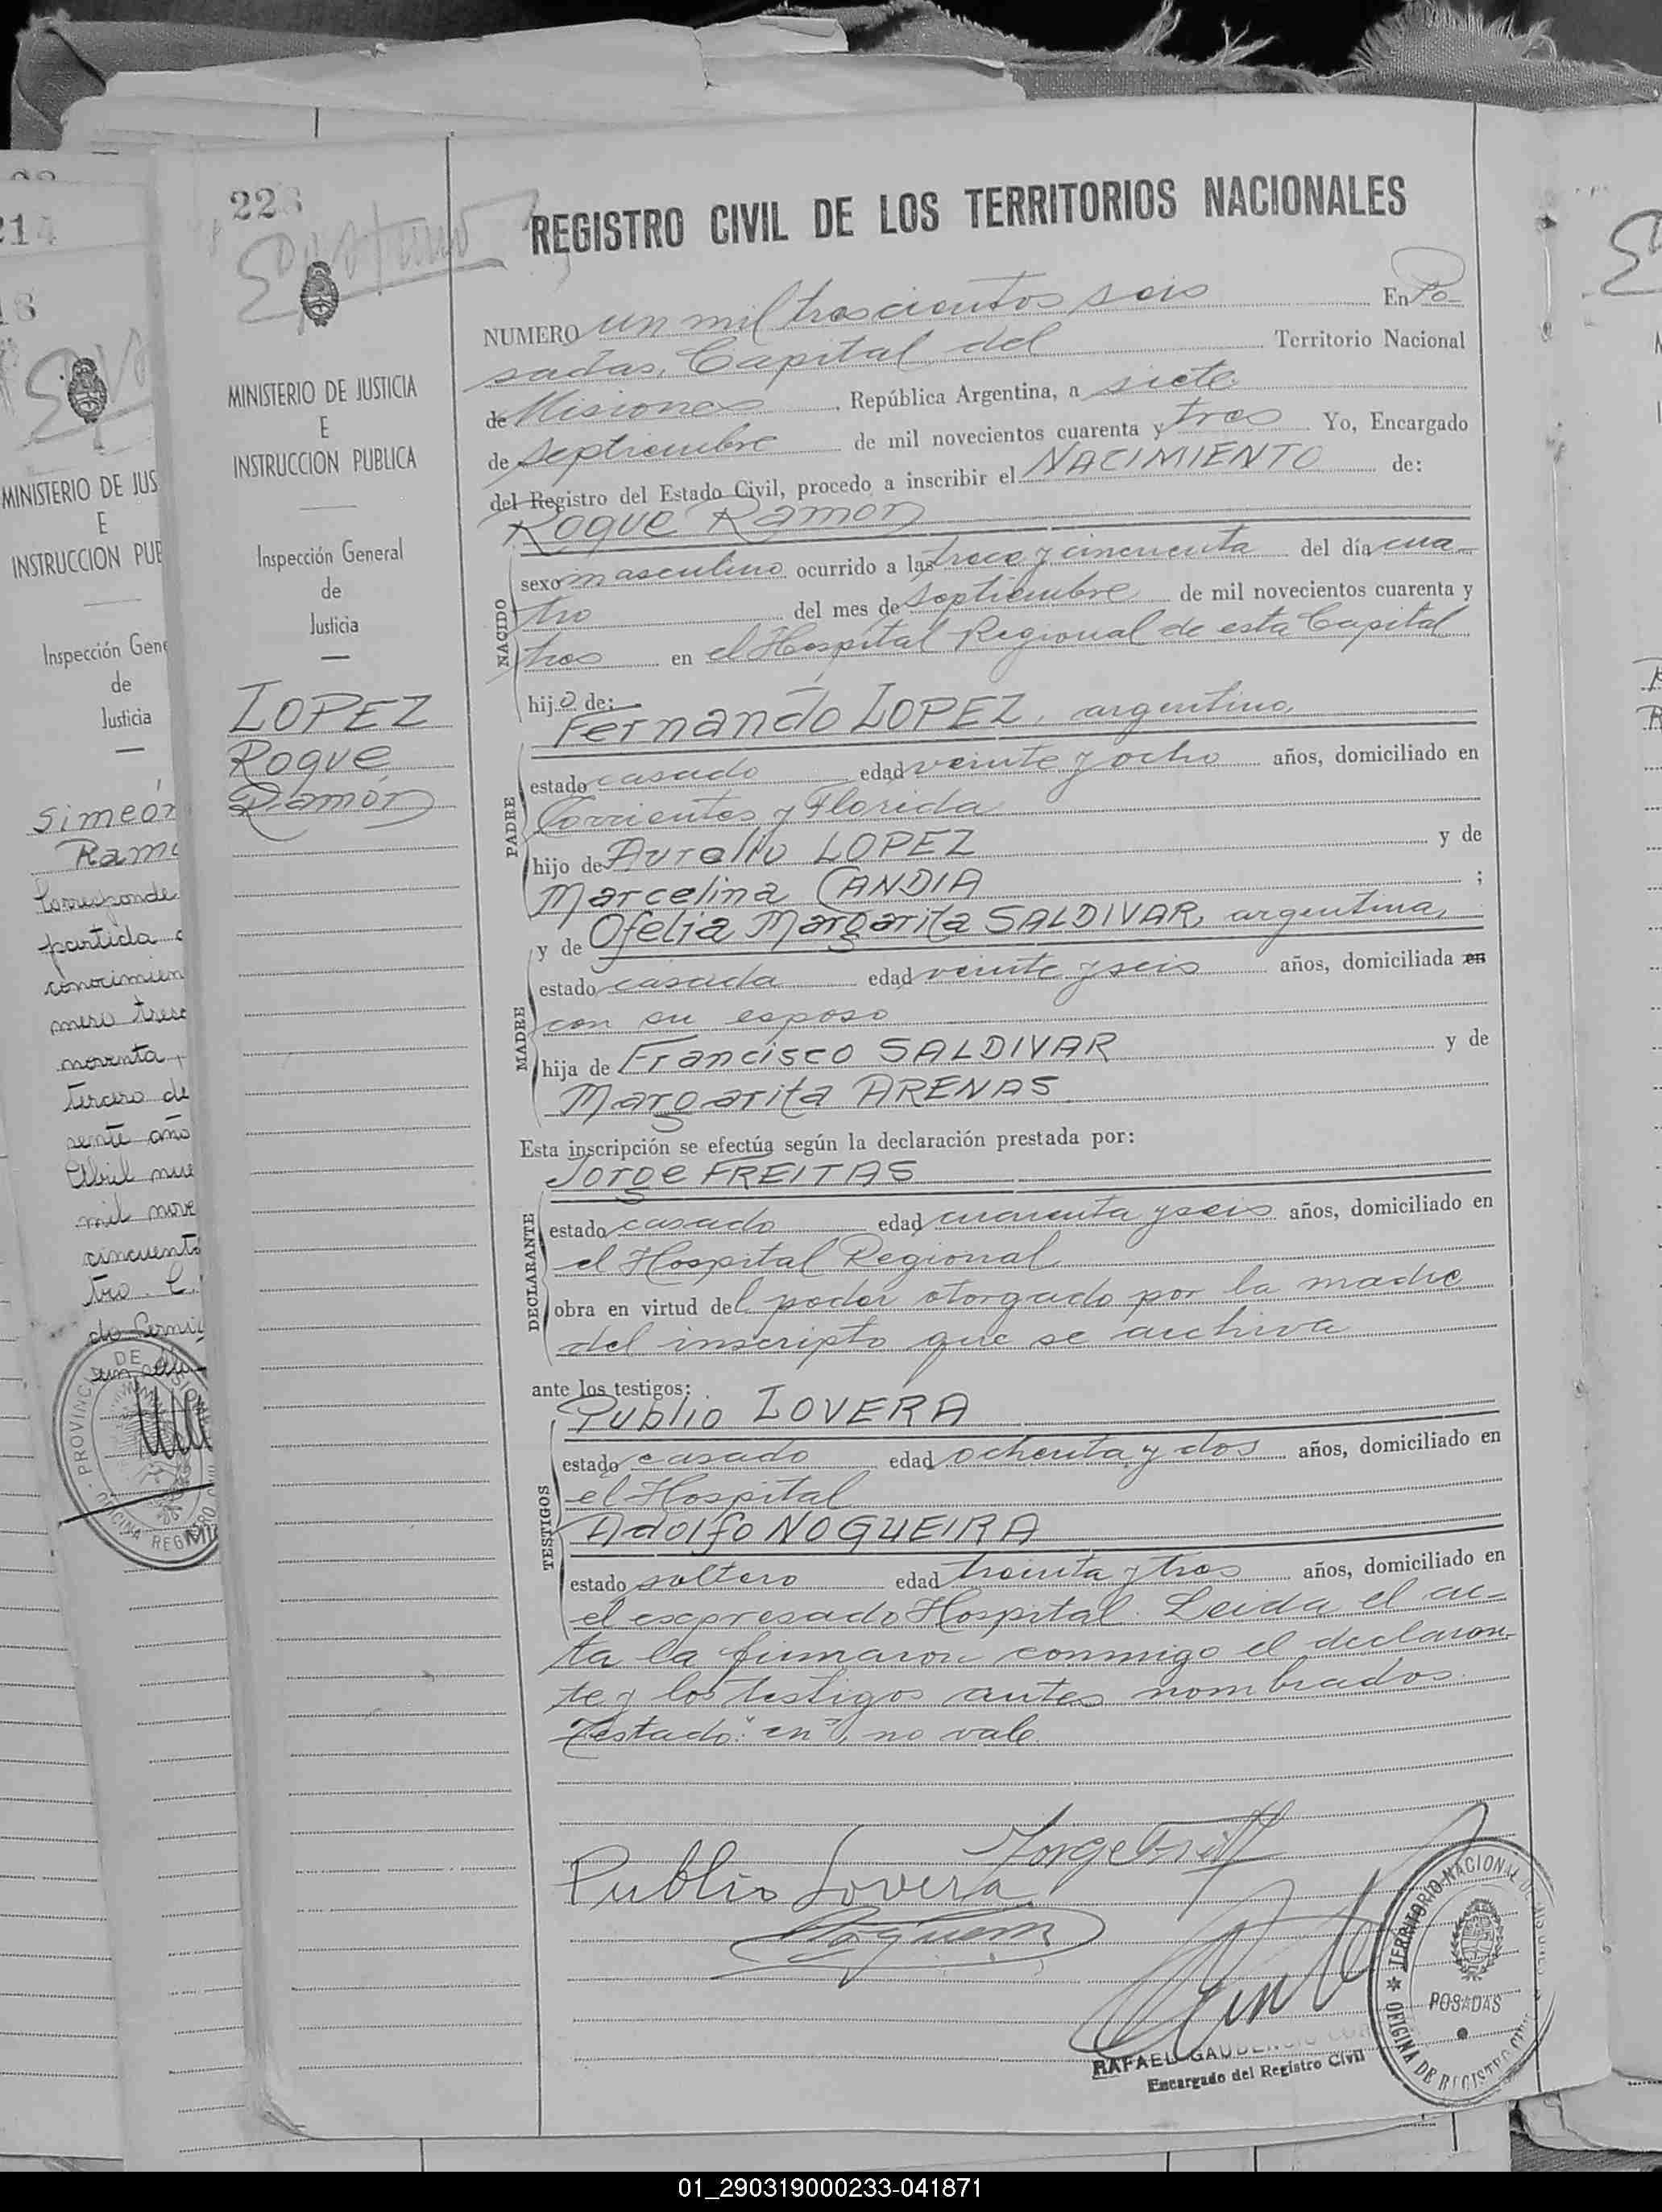 214
18
MINISTERIO DE JUS
E
INSTRUCCION PUB
Inspección Gene
de
Justicia
Simeón
Ramó
Corresponde
partida
conocimien
mero tresc
noventa,
tercero de
sente año
Abril nue
mil nove
cincuenta
tro. C.
PROVINCIA DE MISIONES
OFICINA REGISTRO
223
MINISTERIO DE JUSTICIA
E
INSTRUCCION PUBLICA
Inspección General
de
Justicia
LOPEZ
Roque
Ramón
REGISTRO CIVIL DE LOS TERRITORIOS NACIONALES
NUMERO un mil trescientos seis En Po-
sadas, Capital del Territorio Nacional
de Misiones, República Argentina, a siete
de septiembre de mil novecientos cuarenta y tres Yo, Encargado
del Registro del Estado Civil, procedo a inscribir el NACIMIENTO de:
Roque Ramón
NACIDO
sexo masculino ocurrido a las trece y cincuenta del día cua-
tro del mes de septiembre de mil novecientos cuarenta y
tres en el Hospital Regional de esta Capital
hijo de:
PADRE
Fernando LOPEZ, argentino,
estado casado edad veinte y ocho años, domiciliado en
Corrientes y Florida
hijo de Aurelio LOPEZ y de
Marcelina CANDIA ;
y de Ofelia Margarita SALDIVAR, argentina,
MADRE
estado casada edad veinte y seis años, domiciliada en
con su esposo
hija de Francisco SALDIVAR y de
Margarita ARENAS
Esta inscripción se efectúa según la declaración prestada por:
Jorge FREITAS
DECLARANTE
estado casado edad cuarenta y seis años, domiciliado en
el Hospital Regional
obra en virtud del poder otorgado por la madre
del inscripto que se archiva
ante los testigos:
Publio LOVERA
TESTIGOS
estado casado edad ochenta y dos años, domiciliado en
el Hospital
Adolfo NOGUEIRA
estado soltero edad treinta y tres años, domiciliado en
el expresado Hospital. Leida el ac-
ta la firmaron conmigo el declaran-
te y los testigos antes nombrados.
Testado: "en", no vale.
Publio Lovera
RAFAEL GAUDENCIO
Encargado del Registro Civil
TERRITORIO NACIONAL DE MISIONES
POSADAS
OFICINA DE REGISTRO CIVIL
01_290319000233-041871